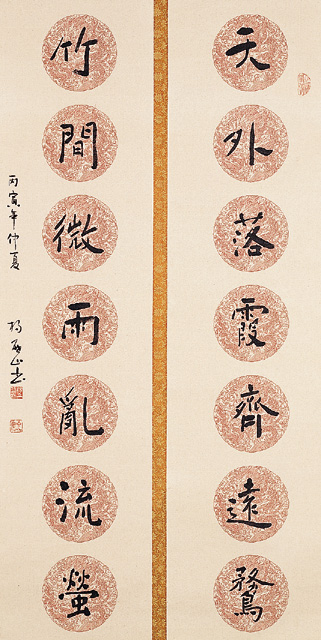 天外落霞齊遠鶩
竹間微雨亂流螢
丙寅年仲夏